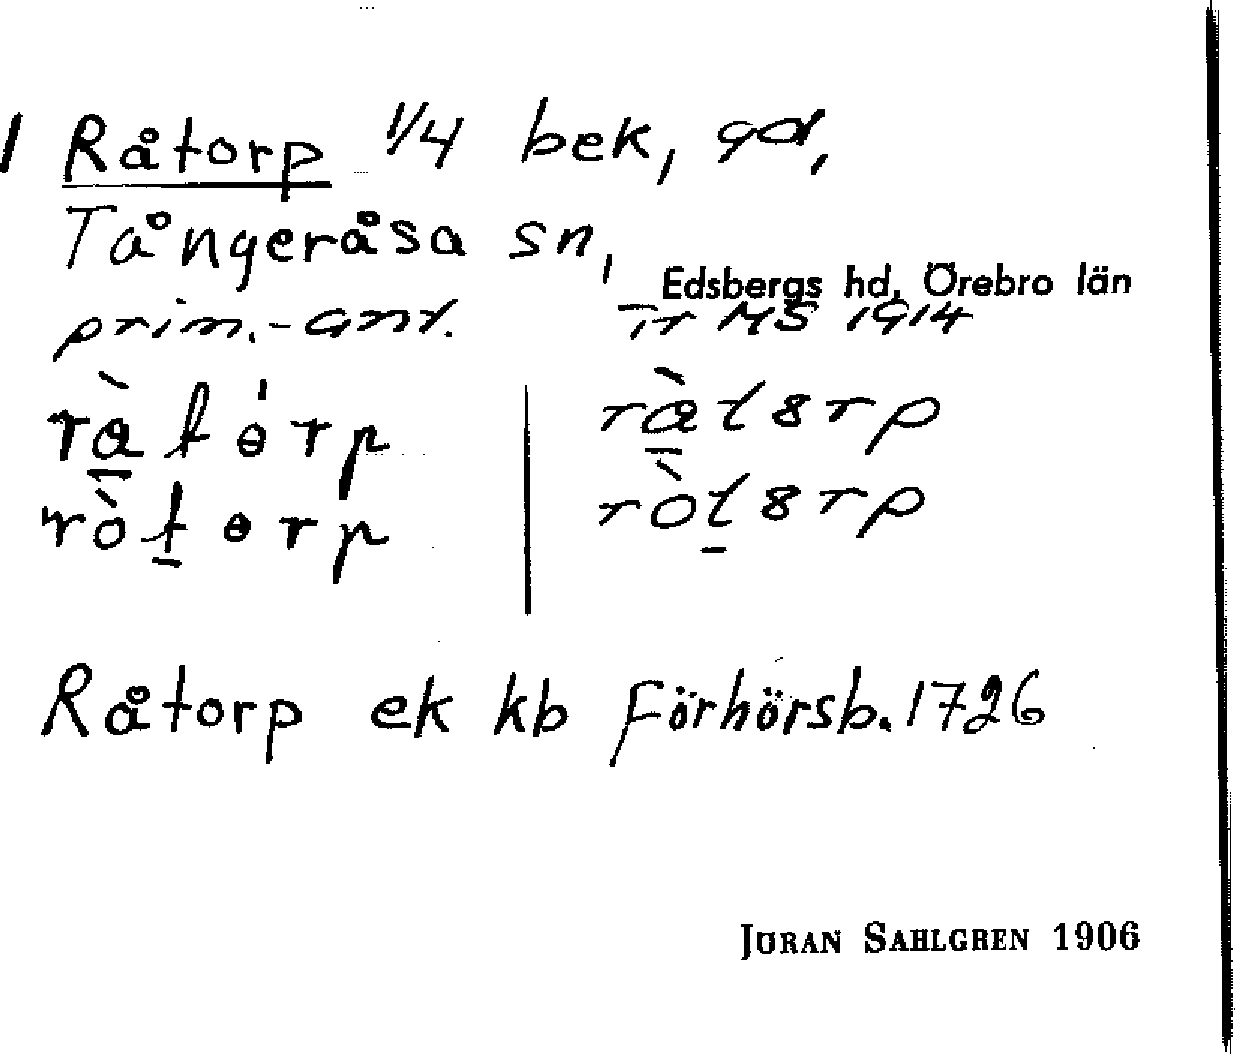 1 Råtorp 1/4 bek, gd,
Tångeråsa sn, Edsbergs hd, Örebro län
prim.-ant. Tr MS 1914
rà̱tórp rà̱t8rp
ròṯɵrp ròṯ8rp
Råtorp ek kb Förhörsb. 1726
JÖRAN SAHLGREN 1906